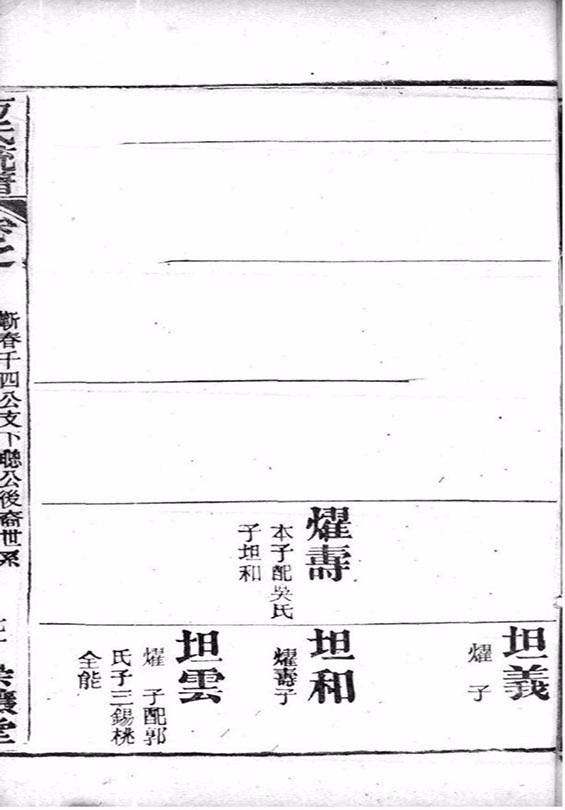 燿壽
本子配吳氏
子坦和
坦義
燿 子
坦和
燿壽子
坦雲
燿 子配郭
氏子三錫桃
全能
氏統譜
卷之
蘄春千四公支下聰公後裔世系
堂